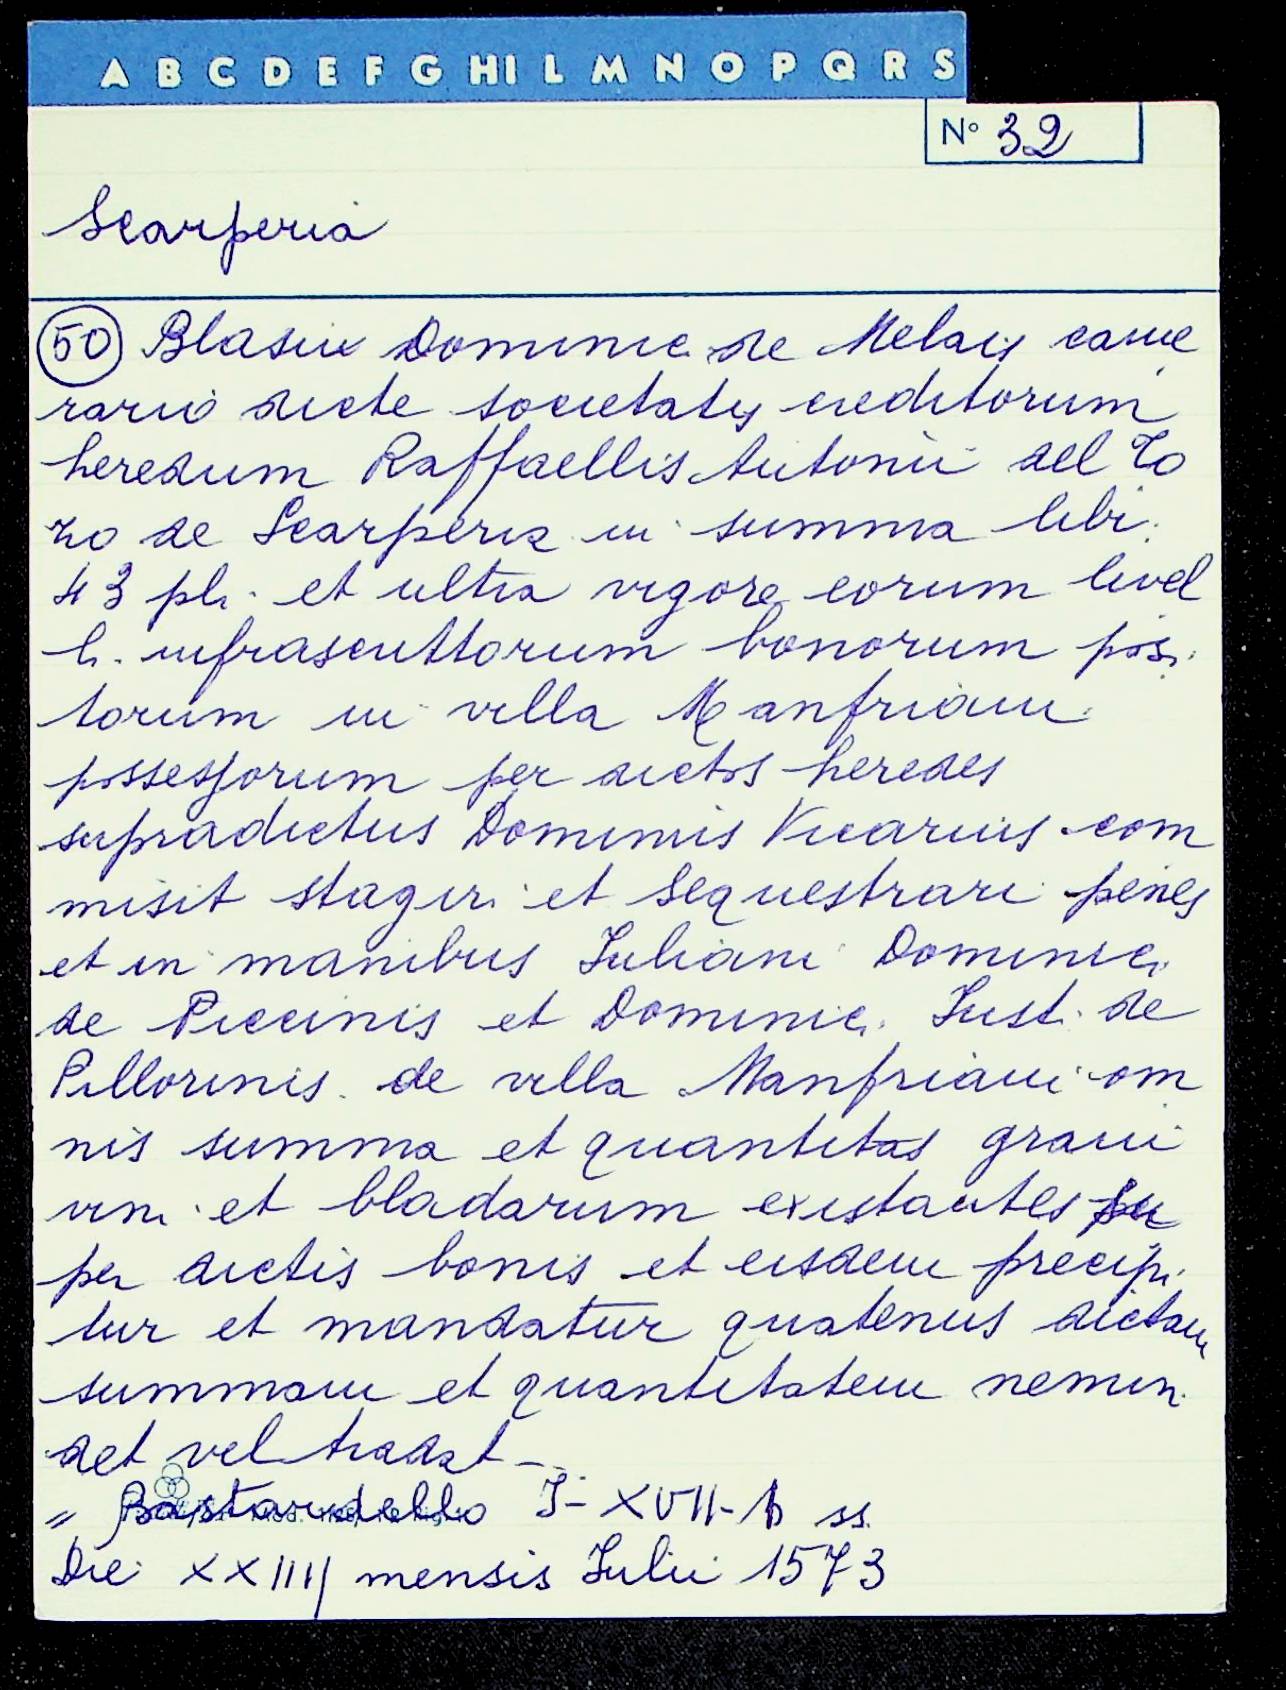 A B C D E F G HI L M N O P Q R S
N° 32
Scarperia
50 Blasiu Dominic. de Melais came
rario dicte societatis creditorum
heredum Raffaellis Antonii del To
zo de Scarperia in summa libr.
43 pl. et ultra vigore eorum livel
li infrascrittorum bonorum posi
torum in villa Manfriani
possessorum per dictos heredes
supradictus Dominus Vicarius com
misit stagiri et sequestrari penes
et in manibus Iuliani Dominici
de Piccinis et Dominic. Iust. de
Pillorinis de villa Manfriani om
nis summa et quantitas grani
vini et bladarum existantes su
per dictis bonis et eisdem precipi
tur et mandatur quatenus dictam
summam et quantitatem nemin.
det vel tradat -
" Bastardello I- XVII- b ss.
Die XXIIII mensis Iulii 1573